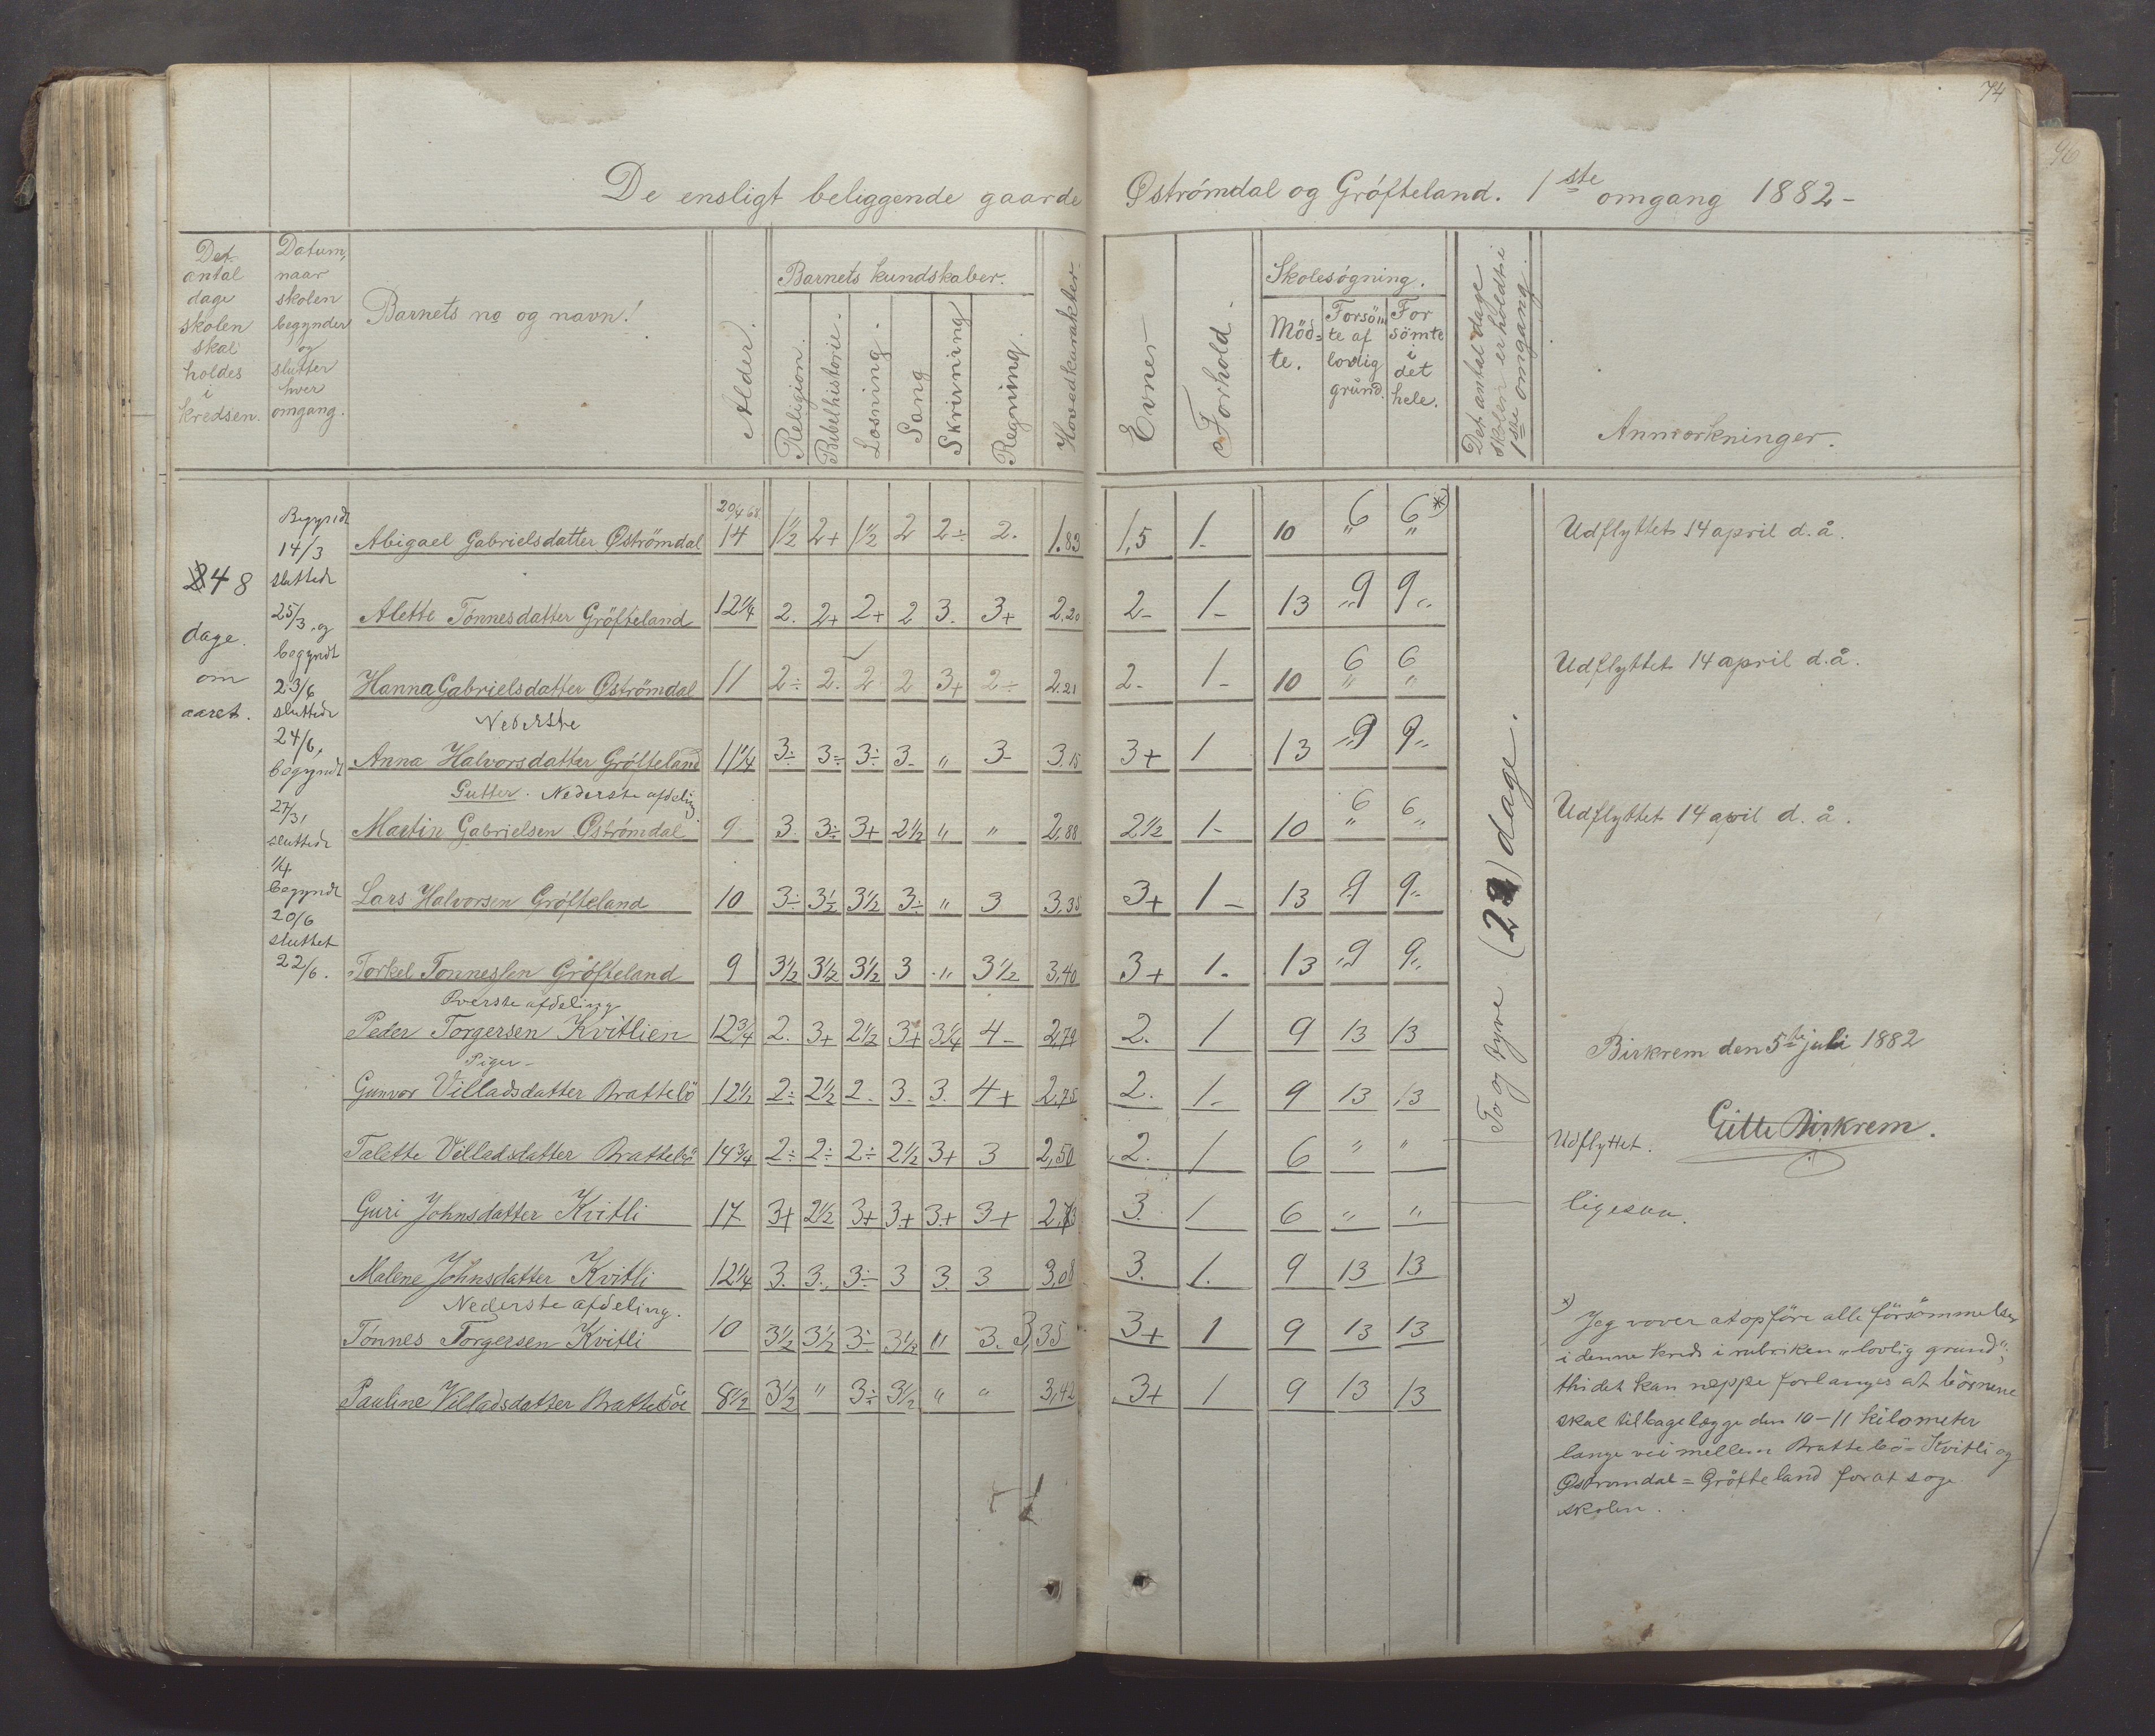 74
96
De ensligt beliggende gaarde Øströmdal og Gröfteland. 1ste omgang 1882-
Det antal dage skolen skal holdes i kredsen.
Datum, naar skolen begynder og slutter hver omgang.
Barnets no og navn!
Alder.
Barnets kundskaber.
Religion.
Bibelhistorie.
Læsning.
Sang
Skrivning
Regning.
Hovedkarakter.
Evner
Forhold.
Skolesögning.
Möd=te.
Forsöm te af lovlig grund.
For sömte i det hele.
Det antal dage skolen er holdt i 1ste omgang.
Anmærkninger.
48 dage. om aaret.
Begyndt 14/3 sluttede 25/3, og begyndt 23/6 sluttede 24/6, begyndt 27/3, sluttede 1/4 begyndt 20/6 sluttet 22/6.
20/4 68
Abigael Gabrielsdatter Øströmdal 14 1½ 2+ 1½ 2 2÷ 2. 1.83 1,5 1. 10 6 " 6 " *) Udflyttet 14 april d. å.
Alette Tönnesdatter Gröfteland 12¼ 2. 2+ 2+ 2 3. 3+ 2,20 2- 1- 13 "9 9"
Hanna Gabrielsdatter Øströmdal 11 2÷ 2. 2 2 3+ 2÷ 2.21 2- 1- 10 6 " 6 " Udflyttet 14 april d. å.
Nederste
Anna Halvorsdatter Gröfteland 11¼ 3÷ 3÷ 3÷ 3- " 3- 3.15 3+ 1 13 "9 9"
Gutter. Nederste afdeling.
Martin Gabrielsen Öströmdal 9 3. 3÷ 3+ 2½ " " 2,88 2½ 1- 10 6 " 6 " Udflyttet 14 april d. å.
Lars Halvorsen Gröfteland 10 3÷ 3½ 3½ 3÷ " 3 3,35 3+ 1- 13 "9 9"
Torkel Tonnessen Gröfteland 9 3½ 3½ 3½ 3 " 3½ 3,40 3+ 1. 13 "9 9"
Øverste afdeling
Peder Torgersen Kvitlien 12¾ 2. 3+ 2½ 3+ 3¼ 4- 2,79 2. 1 9 13 13
To og tyve (22) dage.
Birkrem den 5te juli 1882
Piger-
Gunvor Villadsdatter Brattebö 12½ 2÷ 2½ 2. 3. 3. 4+ 2,75 2. 1. 9 13 13
Gitte Birkrem.
Talette Villadsdatter Brattebö 14¾ 2÷ 2÷ 2÷ 2½ 3+ 3 2,50 2. 1 6 " " Udflyttet.
Guri Johnsdatter Kvitli 17 3+ 2½ 3+ 3+ 3+ 3+ 3. 1 6 " " ligesaa.
Malene Johnsdatter Kvitli 12¼ 3. 3. 3÷ 3 3. 3 3,08 3. 1. 9 13 13
Nederste afdeling.
Tönnes Torgersen Kvitli 10 3½ 3½ 3÷ 3½ " 3. 3,35 3+ 1 9 13 13
Pauline Villadsdatter Bratteböe 8½ 3½ " 3÷ 3½ " " 3,42 3+ 1 9 13 13
*) Jeg vover at opföre alle försömmelser
i denne kreds i rubriken "lovlig grund";
thi det kan neppe forlanges at börnene
skal tilbagelægge den 10-11 kilometer
lange vei mellem Brattebö=Kvitli og
Øströmdal=Gröfteland for at söge
skolen.